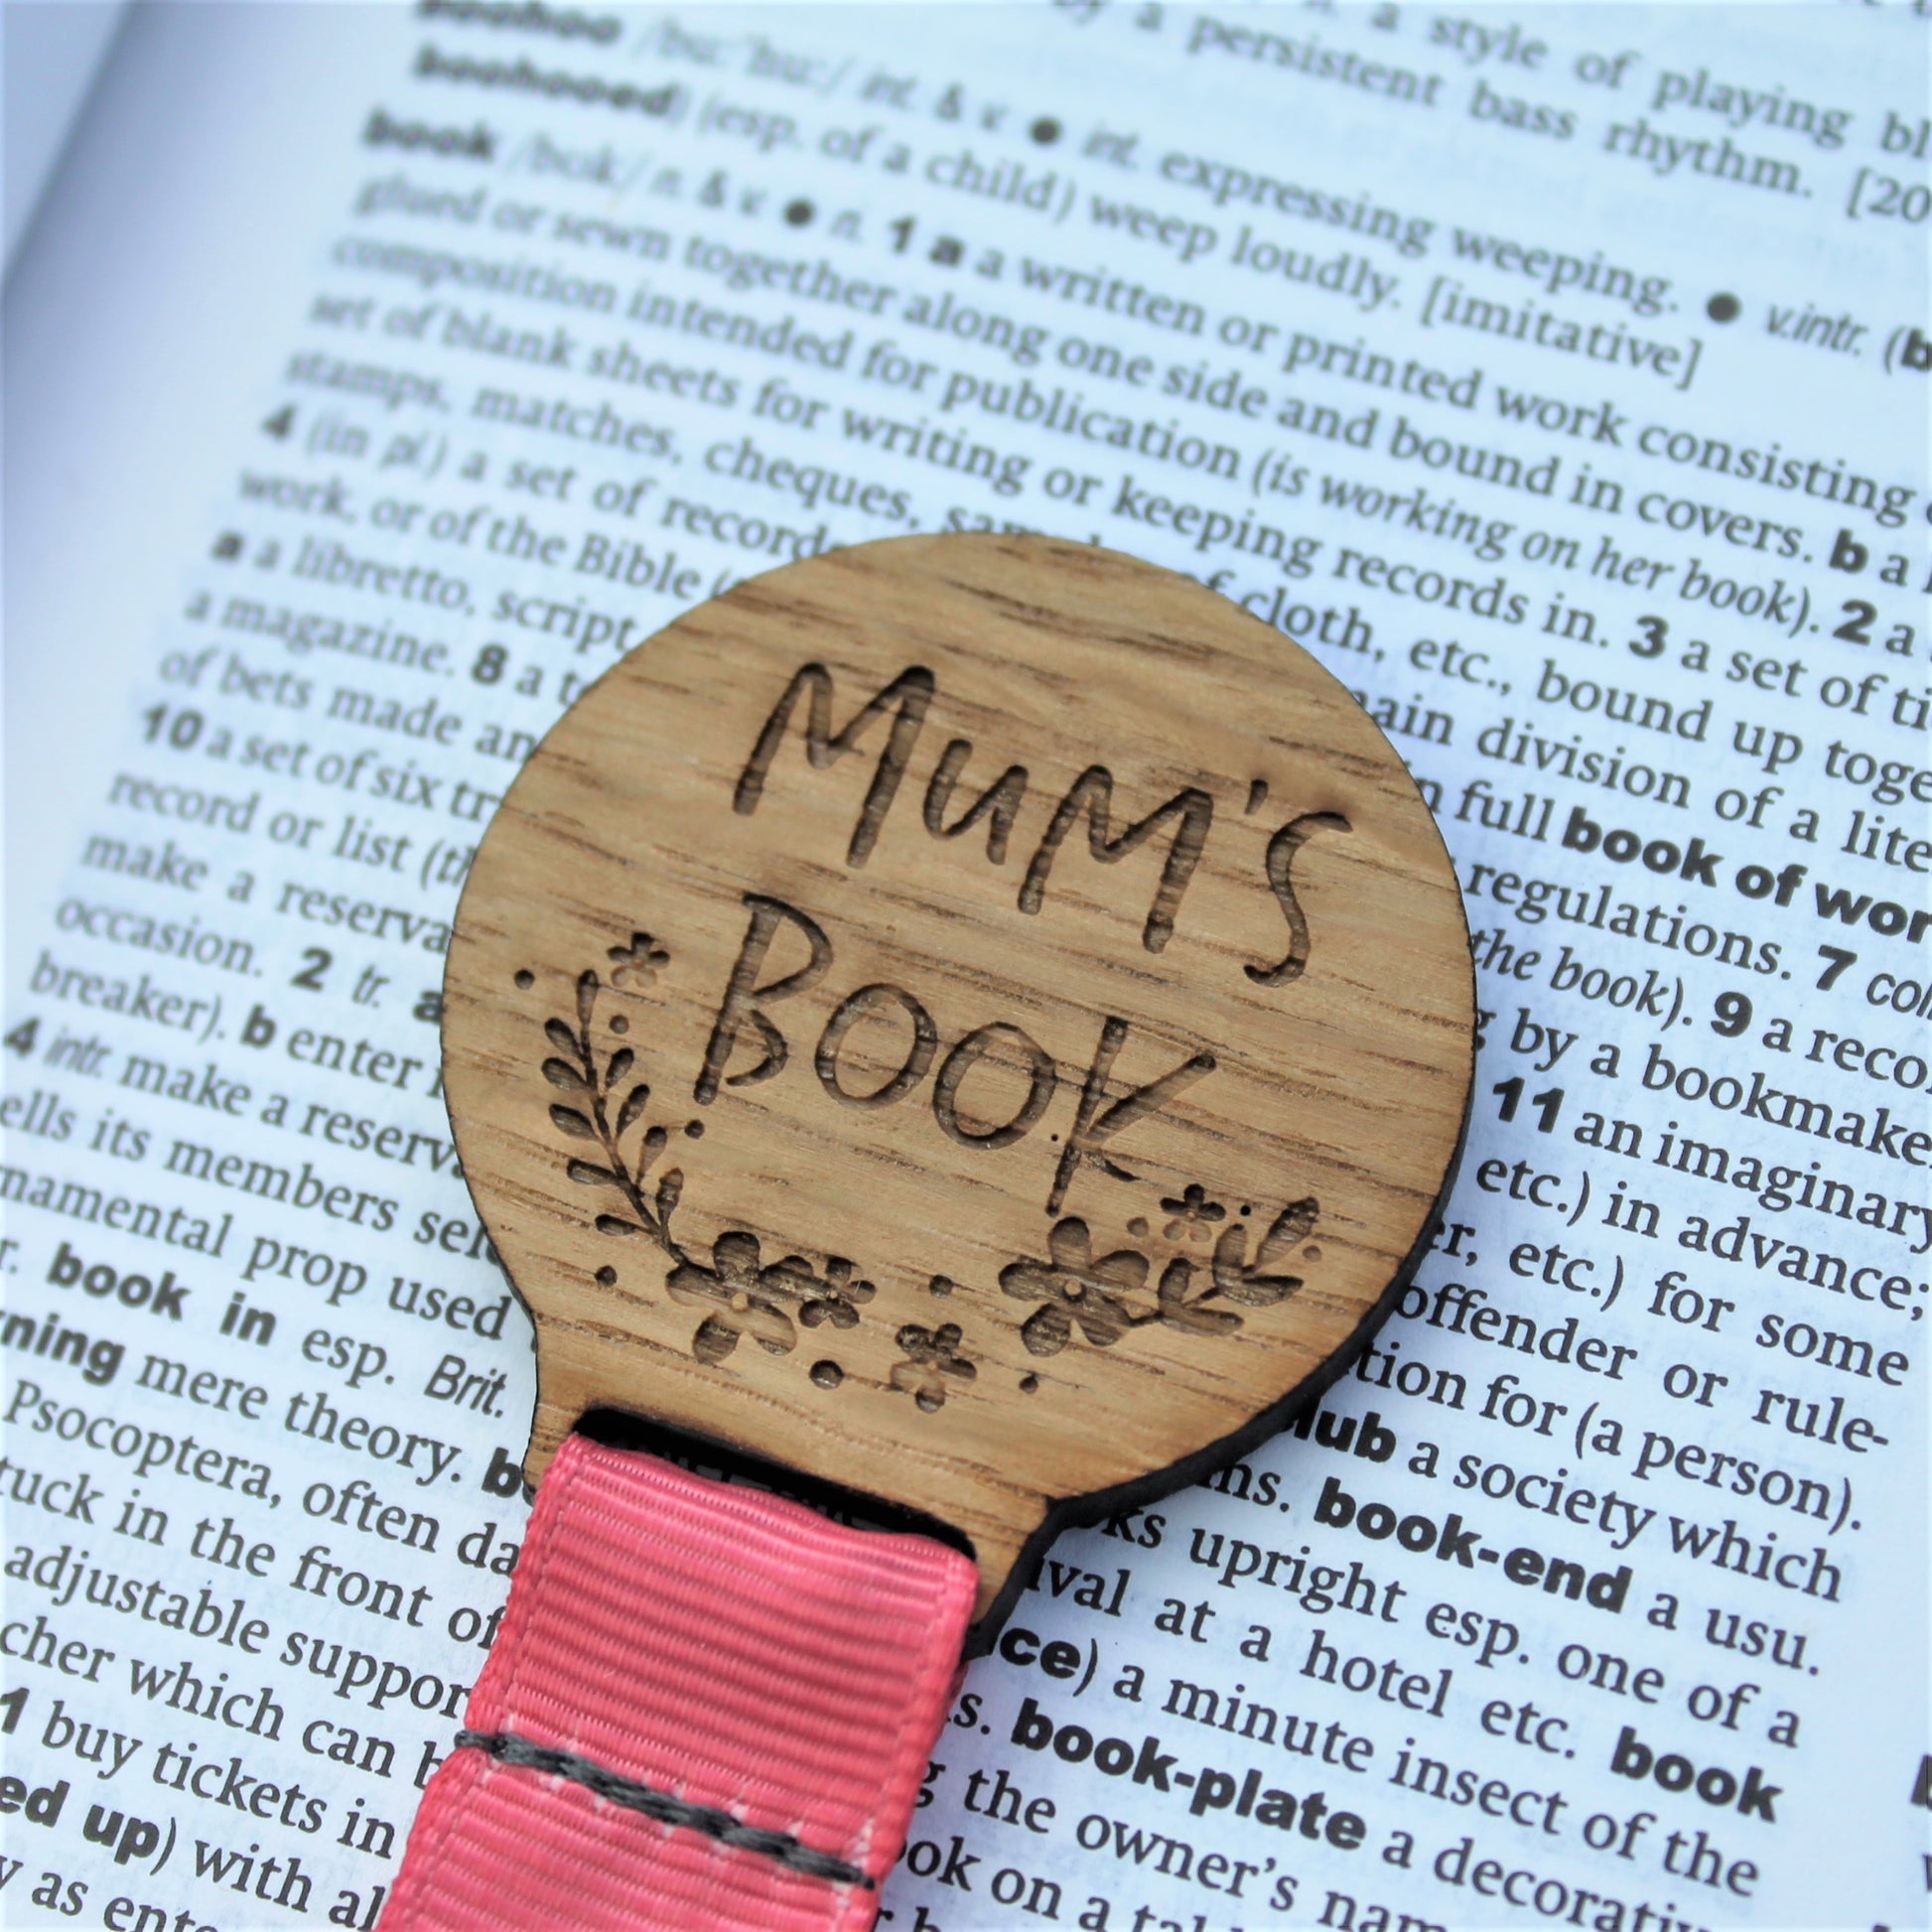 a style of playing bl
by a persistent bass rhythm. [20
boohoo /buːˈhuː/ int. & v. ● int. expressing weeping. ● v.intr. (b
boohooed) (esp. of a child) weep loudly. [imitative]
book /bʊk/ n. & v. ● n. 1 a a written or printed work consisting
glued or sewn together along one side and bound in covers. b a
composition intended for publication (is working on her book). 2 a
set of blank sheets for writing or keeping records in. 3 a set of ti
stamps, matches, cheques, of cloth, etc., bound up toge
4 (in pl.) a set of records ain division of a lite
work, or of the Bible ( n full book of wor
a a libretto, script regulations. 7 col
a magazine. 8 a t the book). 9 a reco
of bets made an by a bookmake
10 a set of six tr 11 an imaginary
record or list (th etc.) in advance;
make a reserva er, etc.) for some
occasion. 2 tr. a offender or rule-
breaker). b enter tion for (a person).
4 intr. make a reserva lub a society which
ells its members sel ms. book-end a usu.
namental prop used ks upright esp. one of a
r. book in esp. Brit. ival at a hotel etc. book
rning mere theory. b ce) a minute insect of the
Psocoptera, often da s. book-plate a decorativ
tuck in the front of g the owner's nam
adjustable suppor ook on a tabl
cher which can b
1 buy tickets in
ed up) with al
y as ente
Mum's
Book